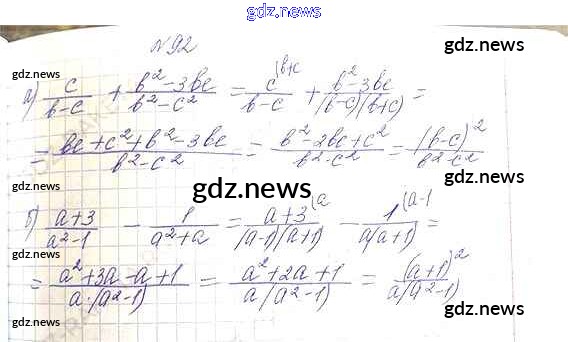 gdz.news
№92
gdz.news
gdz.news
а) c/(b-c) + (b²-3bc)/(b²-c²) = c^(b+c)/(b-c) + (b²-3bc)/((b-c)(b+c)) =
gdz.news
= (bc+c²+b²-3bc)/(b²-c²) = (b²-2bc+c²)/(b²-c²) = (b-c)²/(b²-c²)
gdz.news
gdz.news
gdz.news
б) (a+3)/(a²-1) - 1/(a²+a) = (a+3)^(a)/((a-1)(a+1)) - 1^(a-1)/(a(a+1)) =
gdz.news
gdz.news
= (a²+3a-a+1)/(a·(a²-1)) = (a²+2a+1)/(a(a²-1)) = (a+1)²/(a(a²-1))
gdz.news
gdz.news
gdz.news